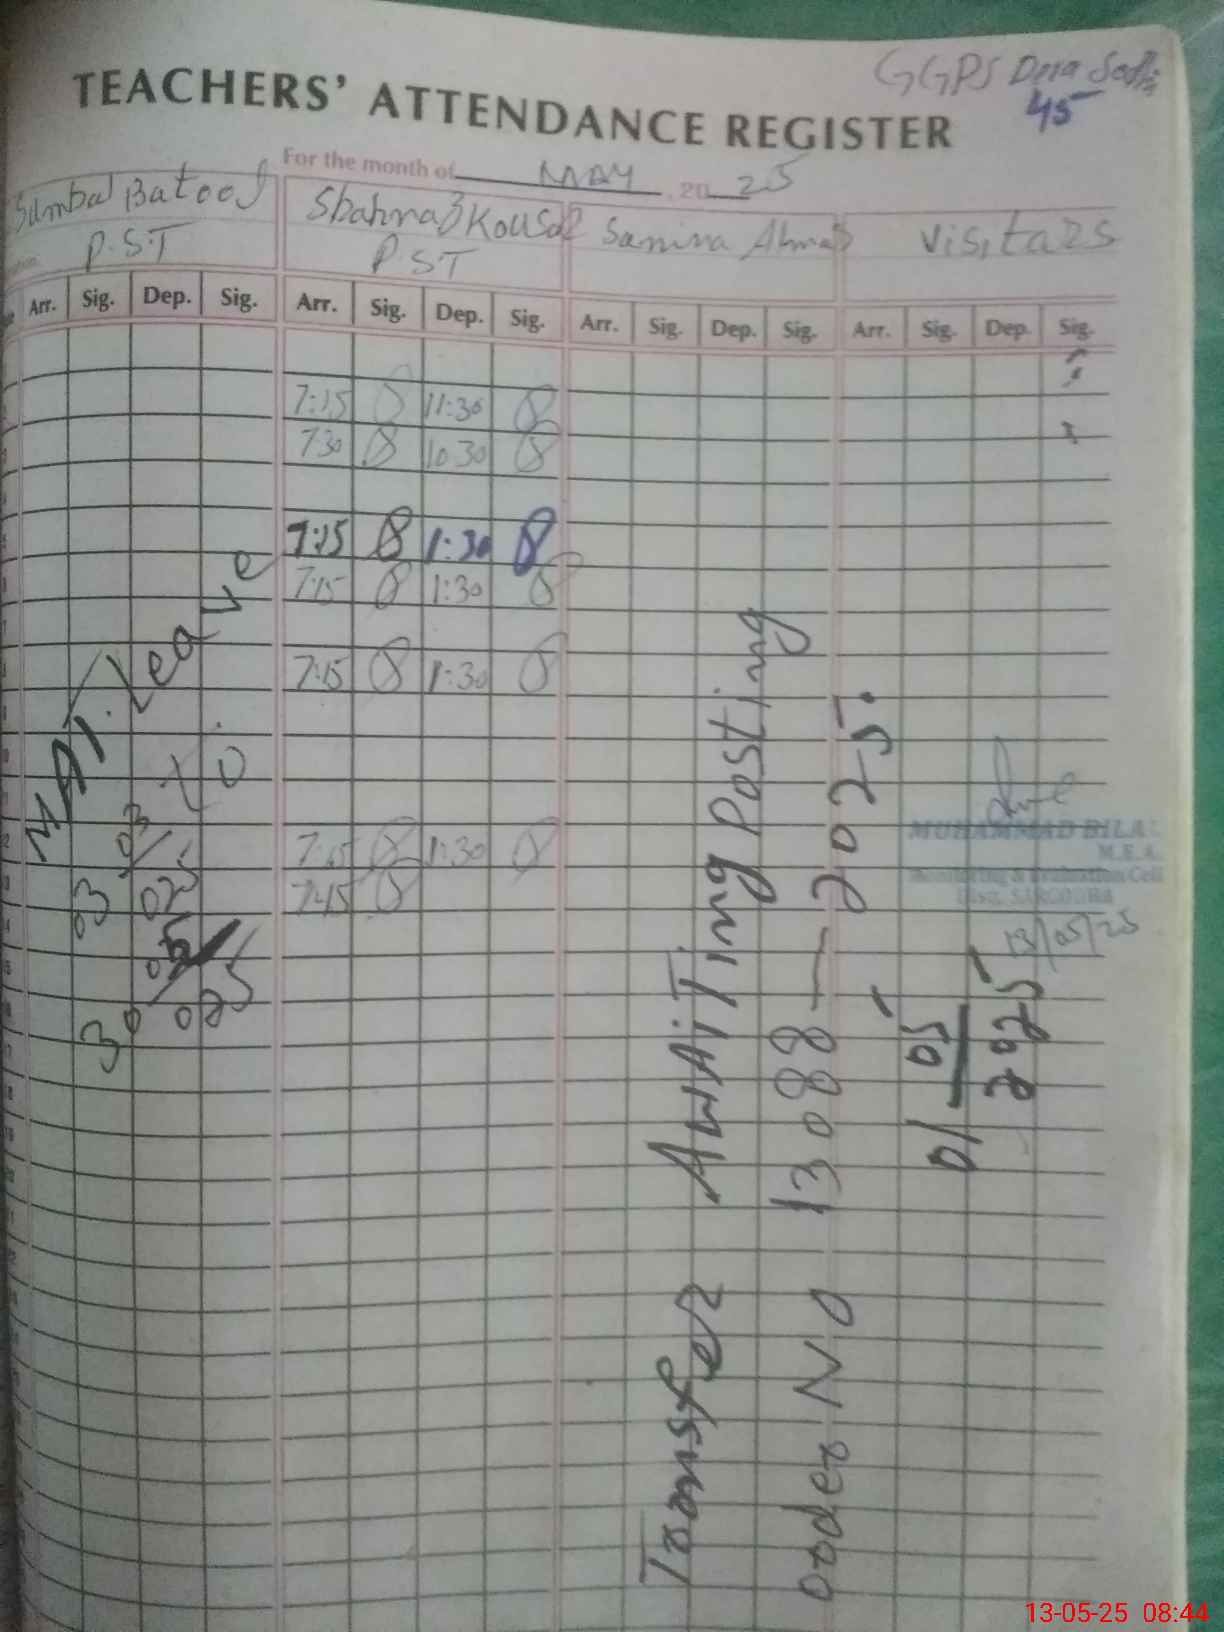 GGPS Dera Sodhi
45
TEACHERS' ATTENDANCE REGISTER
For the month of MAY, 2025
Sumbal Batool
P.S.T
Shahnaz Kousar
P S T
Samina Ahmad
visitors
Arr. Sig. Dep. Sig. Arr. Sig. Dep. Sig. Arr. Sig. Dep. Sig. Arr. Sig. Dep. Sig.
7:15 11:30
7:30 10:30
7:15 1:30
7:15 1:30
7:15 1:30
7:15 1:30
7:15
Leave
to
03
03
025
05
30
025
Transfer AwAiTing Posting
order No 13088 — 2025.
01/05
2025
MUHAMMAD BILAL
M.E.A.
Monitoring & Evaluation Cell
Distt. SARGODHA
13/05/25
13-05-25 08:44